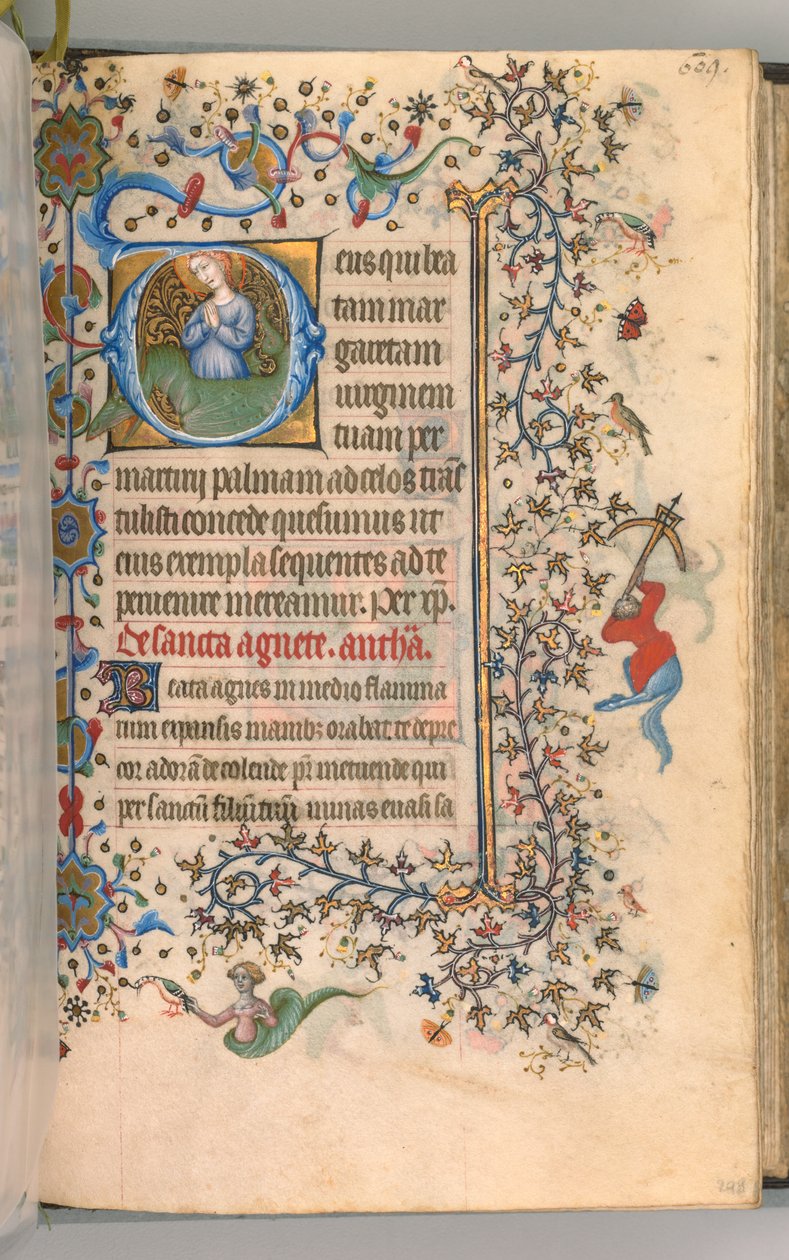 609.
Deus qui bea
tam mar
garetam
uirginem
tuam per
martirij palmam ad celos trāſ
tuliſti concede queſumus ut
eius exempla ſequentes ad te
peruenire mereamur. Per xp̄.
De ſancta agnete. anthā.
Beata agnes in medio flamma
rum expanſis manibꝫ orabat. te depre
cor adorā de colende pr̄ metuende qui
per ſanctū filiū tuū minas euaſi ſa
298